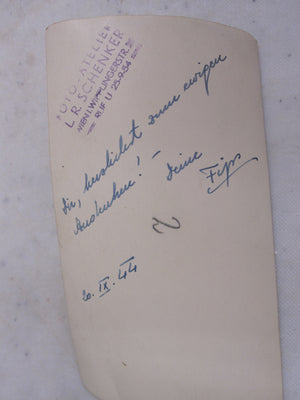 FOTO-ATELIER
L.R. SCHENKER
WIEN I. WIPPLINGERSTR.
RUF U 25-9-54
Dir, herzlichst zum ewigen
Andenken! –
Deine
Fips
20. IX. 44